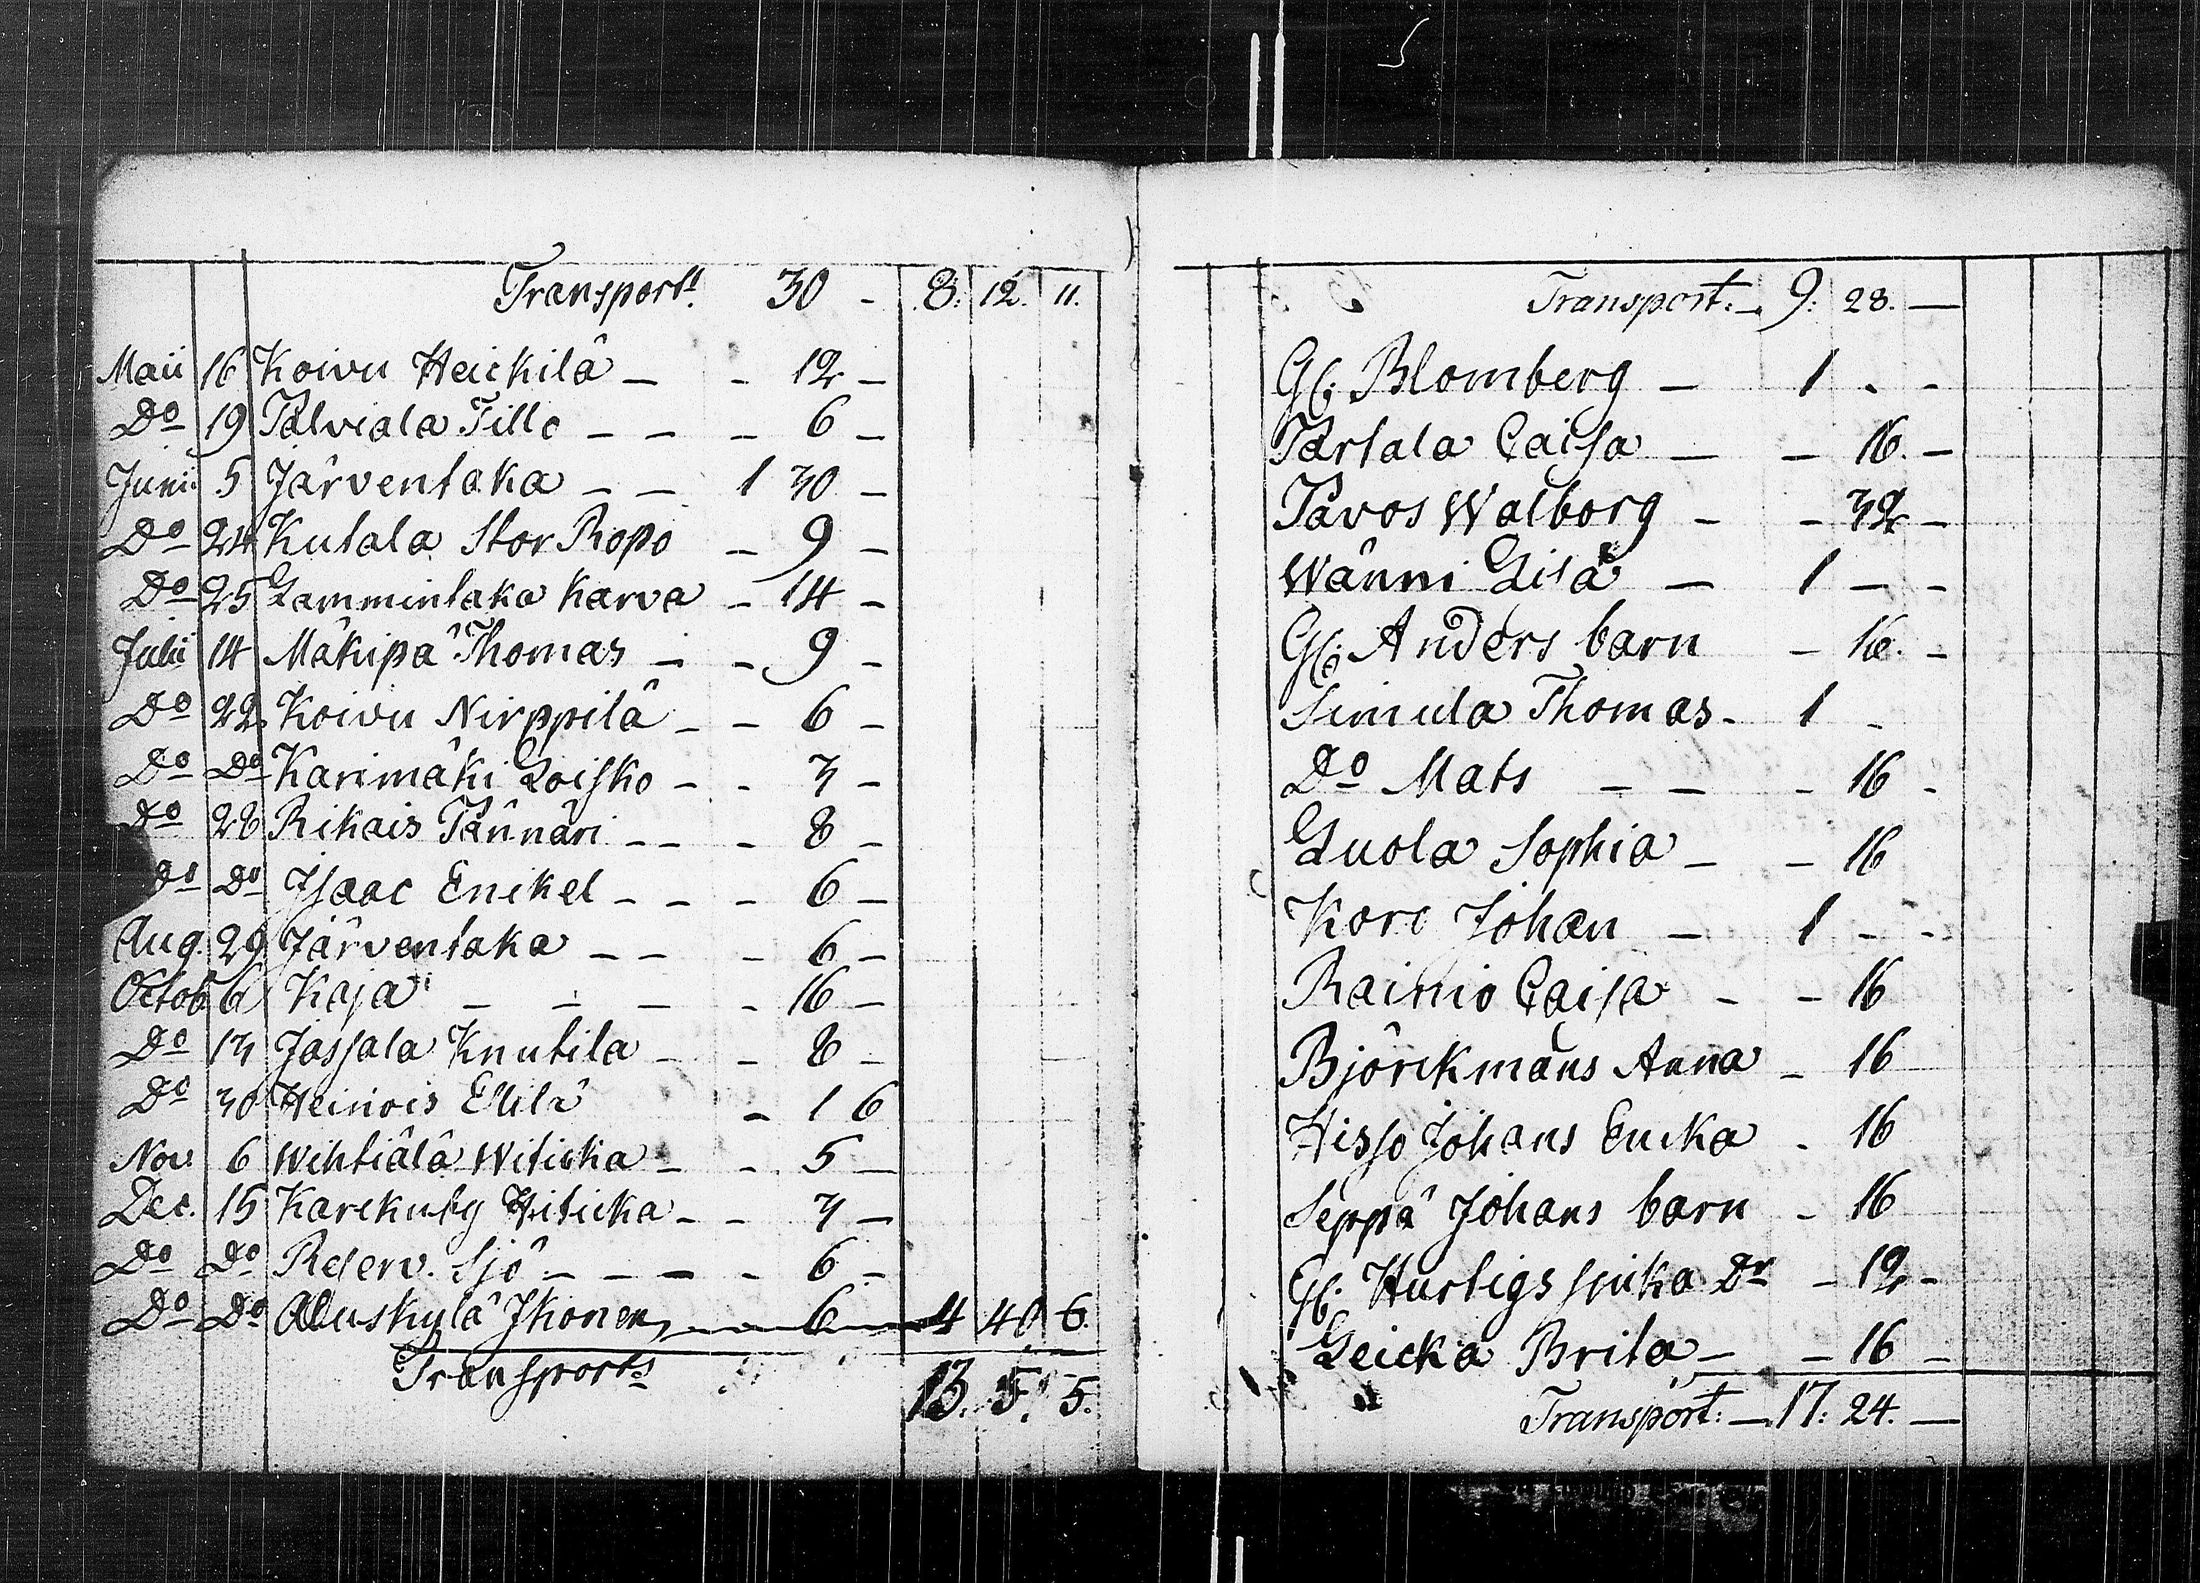 Transport. 30 - 8: 12. 11.
Maii 16 Koivu Heickilä - - 12 -
Do 19 Palviala Tille - - - 6 -
Junii 5 Järventaka - - 1 30 -
Do 24 Kutala Stor Ropo - 9 -
Do 25 Lammintaka Karva - 14 -
Julii 14 Mäkipä Thomas - - 9 -
Do 22 Koivu Nirppilä - - 6 -
Do Do Karimäki Loisko - - 3 -
Do 28 Rikais Pännäri - - - 8 -
Do Do Isaac Enckel - - - 6 -
Aug. 29 Järventaka - - - 6 -
Octob 6 Kaja - - - - 16 -
Do 13 Jassala Knutila - - 8 -
Do 30 Heinois Ellilä - 1 6
Nov. 6 Wihtiälä Witicka - - 5 -
Dec. 15 Karckuby Hiticka - - 3 -
Do Do Reserv. Sjö - - - - 6 -
Do Do Aluskylä Ikonen - - 6 - 4 40 6.
Transport 13. 5. 5.
Transport: - 9: 28. -
Gf. Blomberg - 1 - -
Partala Caisa - - 16. -
Pavos Walborg - - 32 -
Wänni Lisa - 1 - -
Gf. Anders barn - 16. -
Simula Thomas - 1 -
Do Mats - - - 16 -
Luola Sophia - - 16
Kore Johan - 1 - -
Rainio Caisa - - 16
Björckmans Anna - 16
Hisso Johans Encka - 16
Seppä Johans barn - 16
Gf. Hurtigs sjuka Dr - 12 -
Leicka Brita - - 16 -
Transport: - 17: 24. -